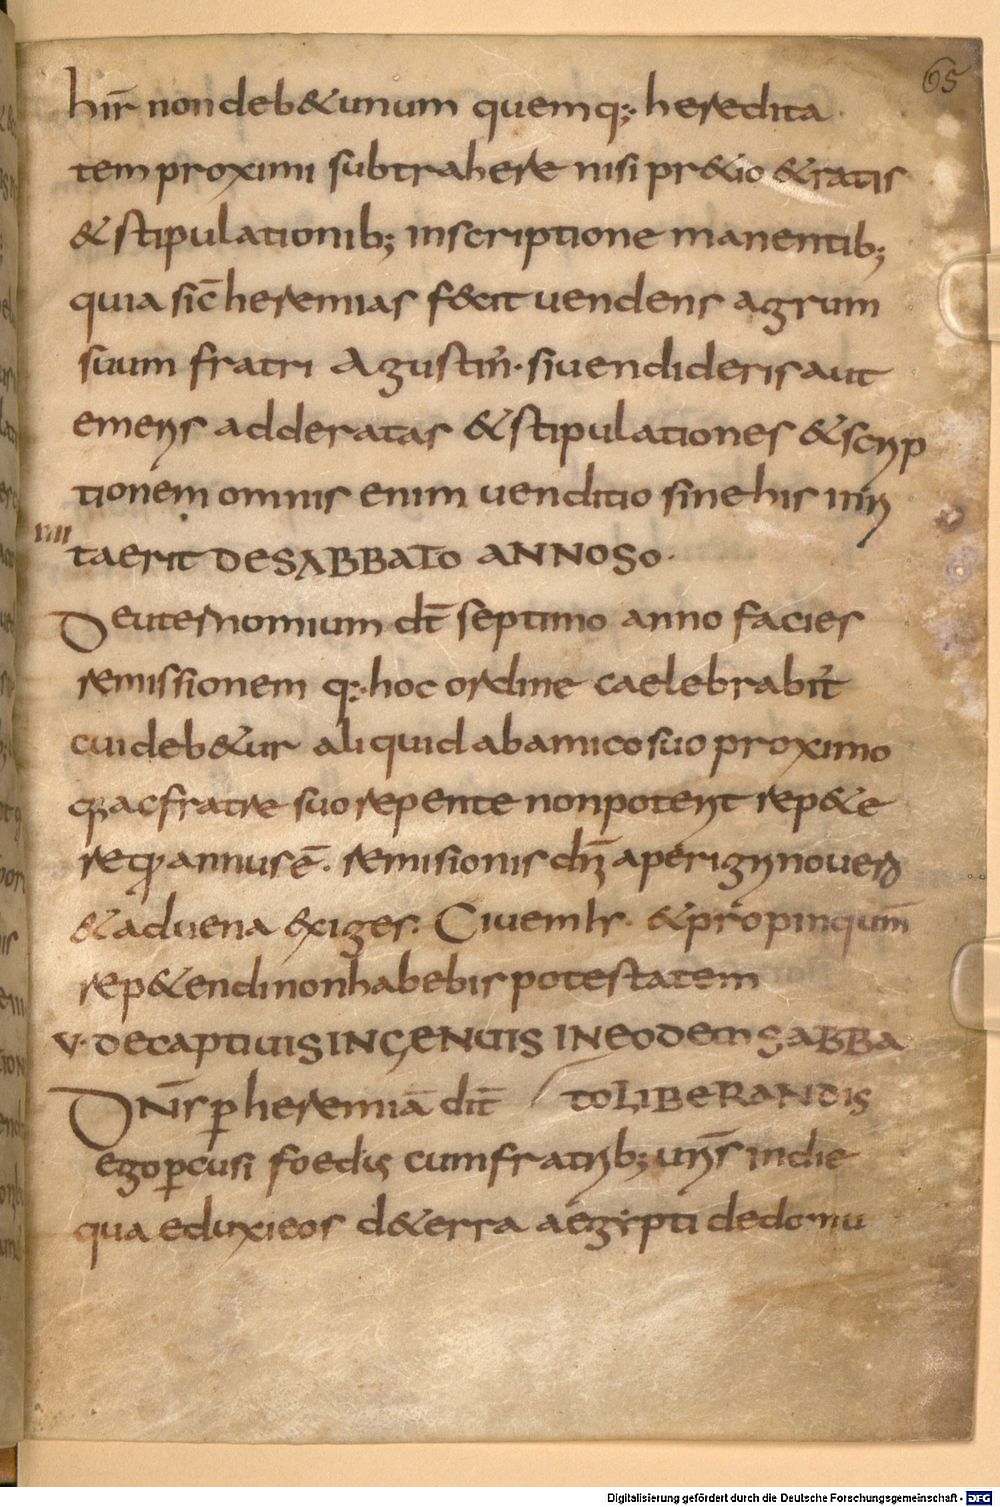 65
hir̄ non deb&unum quemq; heredita
tem proximi subtrahere nisi pr&io &ratis
&stipulationib; inscriptione manentib;
quia sic̄ heremias f&cit uendens agrum
suum fratri Agustin̄· siuendideris aut
emeris adderatas &stipulationes &scrip
tionem omnis enim uenditio sinehis irri
taerit DESABBATO ANNOSO·
IIII
Deuteronomium dt̄ septimo anno facies
remissionem q;· hoc ordine caelebrabit̄
cui deb&ur aliquid abamico suo proximo
q; acfratre suo repente non potest rep&e
re quannus ē· remisionis dn̄i a perigrino uero
&aduena &xiges· Ciuem hr· &propinquum̄
rep&endi nonhabebis potestatem
V· DECAPTIUIS INGENUIS INEODEM SABBA
TO LIBERANDIS
Dn̄s p heremiā dit̄
ego pcusi foedis cumfratrib; urīs indie
qua eduxieos d&erra aegipti dedomu
Digitalisierung gefördert durch die Deutsche Forschungsgemeinschaft - DFG